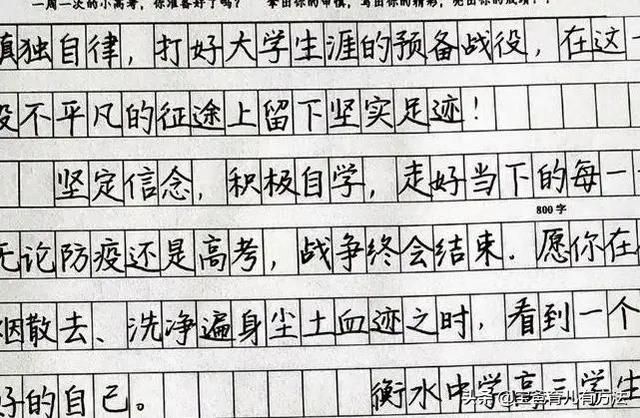 一周一次的小高考，你准备好了吗？ 拿出你的审慎，写出你的精彩，亮出你的成绩！
慎独自律，打好大学生涯的预备战役，在这一
段不平凡的征途上留下坚实足迹！
坚定信念，积极自学，走好当下的每一
800字
无论防疫还是高考，战争终会结束．愿你在
烟散去、洗净遍身尘土血迹之时，看到一个
好的自己。 衡水中学高三学生
头条@宝禽育儿有方法